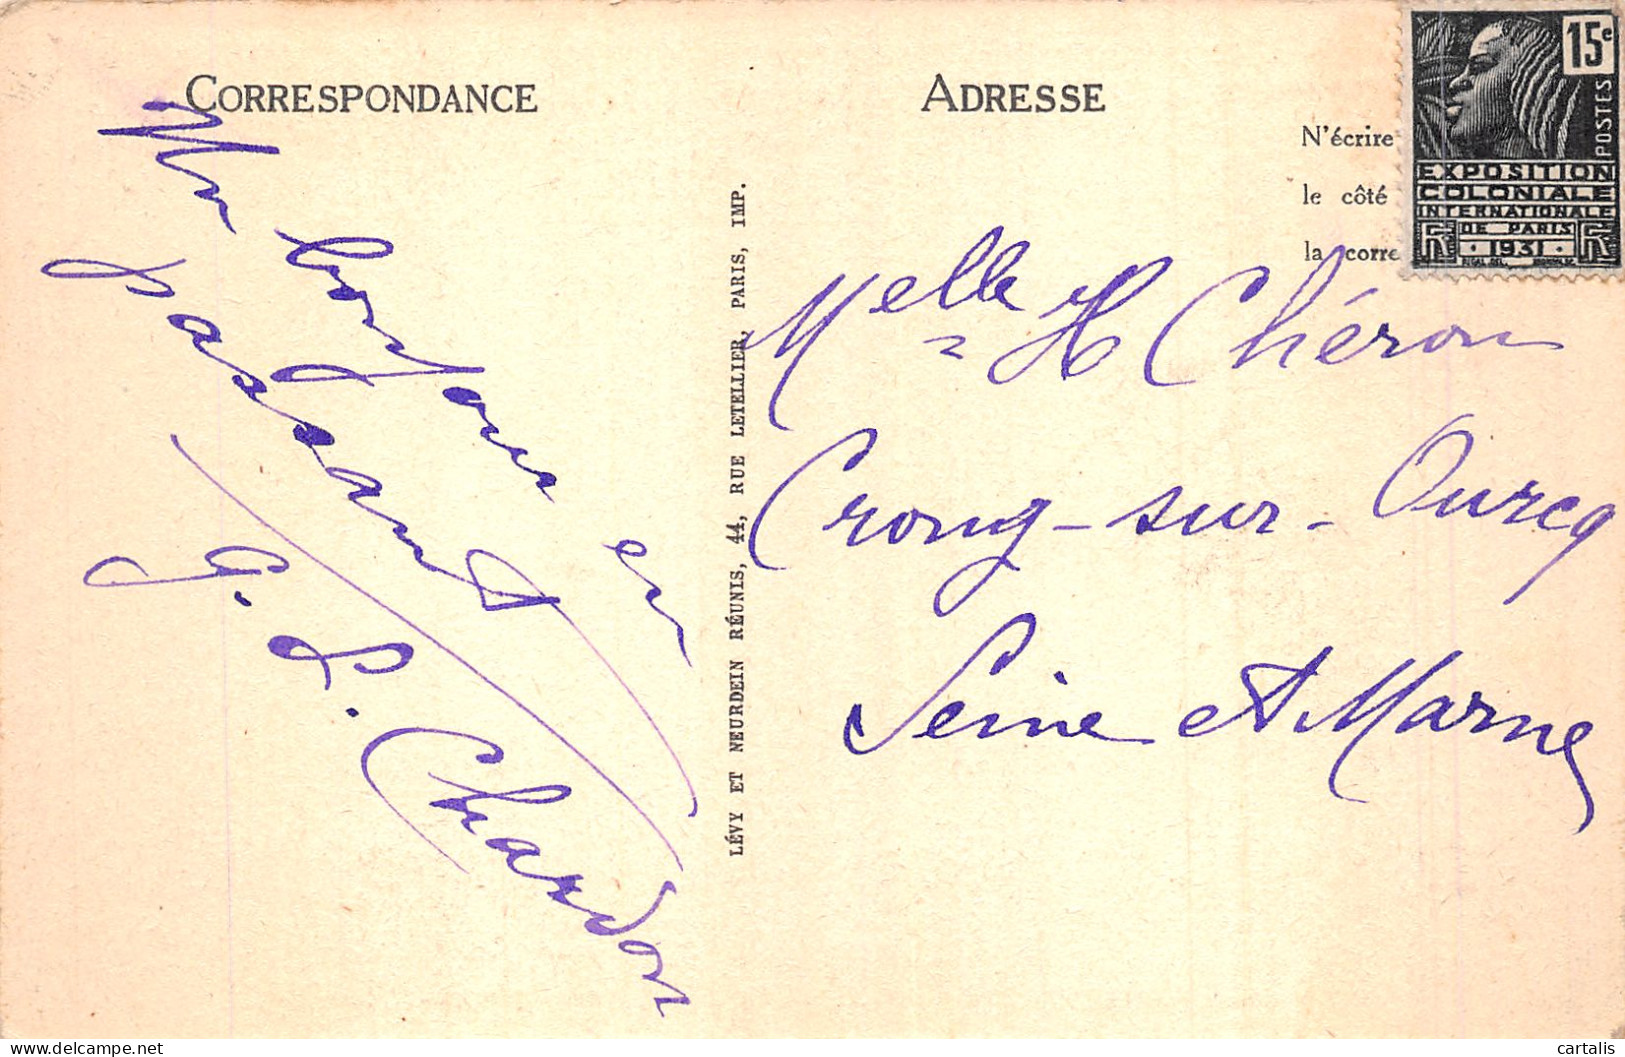 CORRESPONDANCE
Un bonjour en
passant
G. L. Chardon
LÉVY ET NEURDEIN RÉUNIS, 44, RUE LETELLIER, PARIS, IMP.
ADRESSE
N'écrire
le côté
la corre
15c
POSTES
EXPOSITION
COLONIALE
INTERNATIONALE
DE PARIS
RF · 1931 · RF
Melle H Chéron
Crouy-sur-Ourcq
Seine et Marne
cartalis